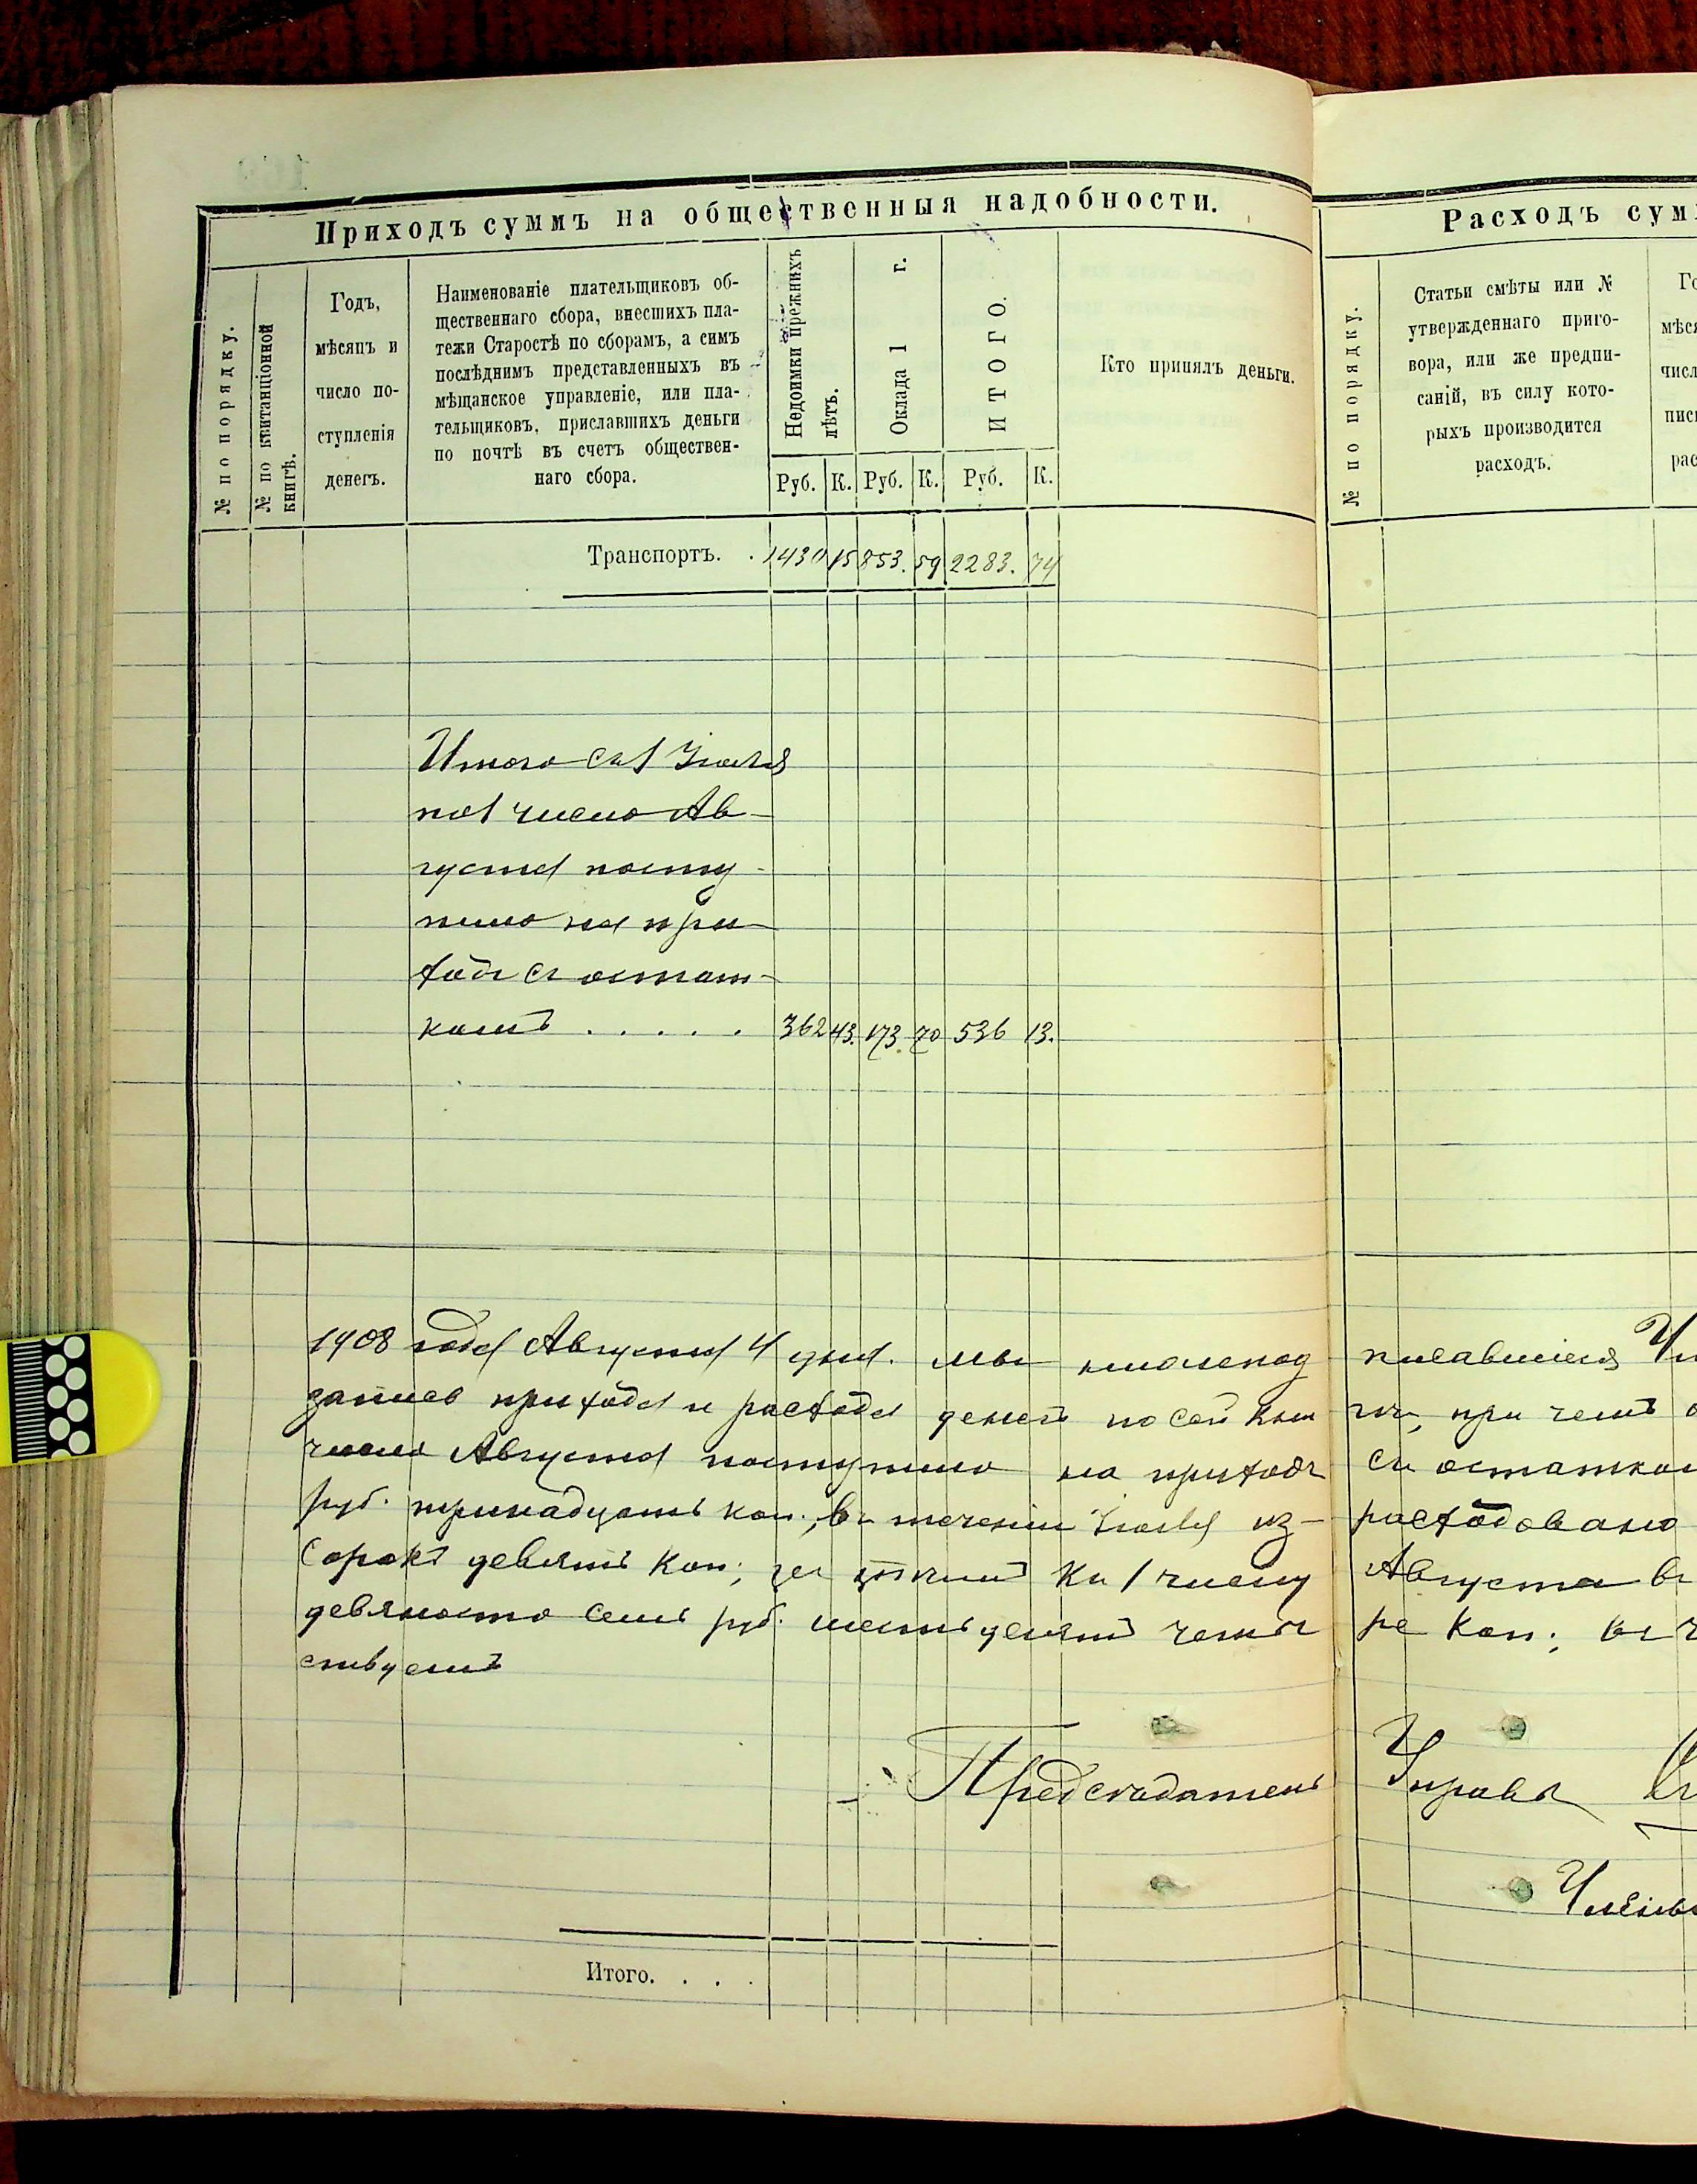 Приходъ суммъ на общественныя надобности.
№ по порядку.
№ по квитанціонной
книгѣ.
Годъ,
мѣсяцъ и
число по-
ступленія
денегъ.
Наименованіе плательщиковъ об-
щественнаго сбора, внесшихъ пла-
тежи Старостѣ по сборамъ, а симъ
послѣднимъ представленныхъ въ
мѣщанское управленіе, или пла-
тельщиковъ, приславшихъ деньги
по почтѣ въ счетъ обществен-
наго сбора.
Недоимки прежнихъ
лѣтъ.
Оклада 1 г.
ИТОГО.
Руб. К. Руб. К. Руб. К.
Кто принялъ деньги.
Транспортъ. . 1430 15 853. 59 2283. 74
Итого съ 1 Іюля
по 1 число Ав-
густа посту-
пило на при-
ходъ съ остат-
комъ . . . . . 362 43. 173. 70 536 13.
1908 года Августа 4 дня. мы нижепод
записе прихода и расхода денегъ по сей кни
число Августа поступило на приходъ
руб. тринадцать коп.; въ теченіи Іюля из-
Сорокъ девять Коп; за Къ 1 числу
девяносто семь руб. шестьдесятъ четы
ствуемъ
Предсѣдатель
Итого. . . .
Расходъ сум
№ по порядку.
Статьи смѣты или №
утвержденнаго приго-
вора, или же предпи-
саній, въ силу кото-
рыхъ производится
расходъ.
Го
мѣся
числ
писк
рас
писавшіеся
ги, при чемъ
съ остатком
расходовано
Августа въ
ре Коп; въ
Управы
Члены